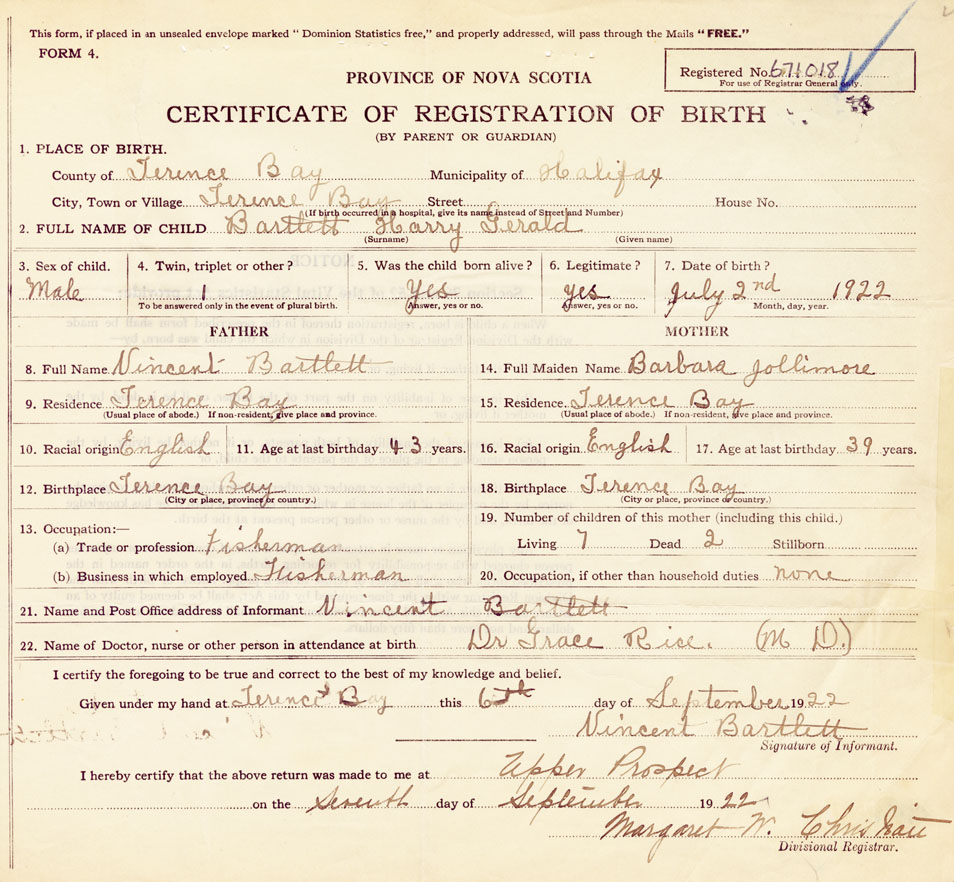 This form, if placed in an unsealed envelope marked "Dominion Statistics free," and properly addressed, will pass through the Mails "FREE."
FORM 4.
PROVINCE OF NOVA SCOTIA
Registered No. 671018
For use of Registrar General only.
CERTIFICATE OF REGISTRATION OF BIRTH
(BY PARENT OR GUARDIAN)
1. PLACE OF BIRTH.
County of Terence Bay Municipality of Halifax
City, Town or Village Terence Bay Street House No.
(If birth occurred in a hospital, give its name instead of Street and Number)
2. FULL NAME OF CHILD Bartlett Harry Gerald
(Surname) (Given name)
3. Sex of child. 4. Twin, triplet or other? 5. Was the child born alive? 6. Legitimate? 7. Date of birth?
Male 1 Yes yes July 2nd 1922
To be answered only in the event of plural birth. Answer, yes or no. Answer, yes or no. Month, day, year.
FATHER MOTHER
8. Full Name Vincent Bartlett 14. Full Maiden Name Barbara Jollimore
9. Residence Terence Bay 15. Residence. Terence Bay
(Usual place of abode.) If non-resident, give place and province. (Usual place of abode.) If non-resident, give place and province.
10. Racial origin English 11. Age at last birthday 43 years. 16. Racial origin English 17. Age at last birthday 39 years.
12. Birthplace Terence Bay 18. Birthplace Terence Bay
(City or place, province or country.) (City or place, province or country.)
13. Occupation:— 19. Number of children of this mother (including this child.)
(a) Trade or profession Fisherman Living 7 Dead 2 Stillborn
(b) Business in which employed Fisherman 20. Occupation, if other than household duties none
21. Name and Post Office address of Informant Vincent Bartlett
22. Name of Doctor, nurse or other person in attendance at birth Dr Grace Rice. (M D.)
I certify the foregoing to be true and correct to the best of my knowledge and belief.
Given under my hand at Terence Bay this 6th day of September 1922
Vincent Bartlett
Signature of Informant.
I hereby certify that the above return was made to me at Upper Prospect
on the Seventh day of September 1922
Margaret W. Christian
Divisional Registrar.